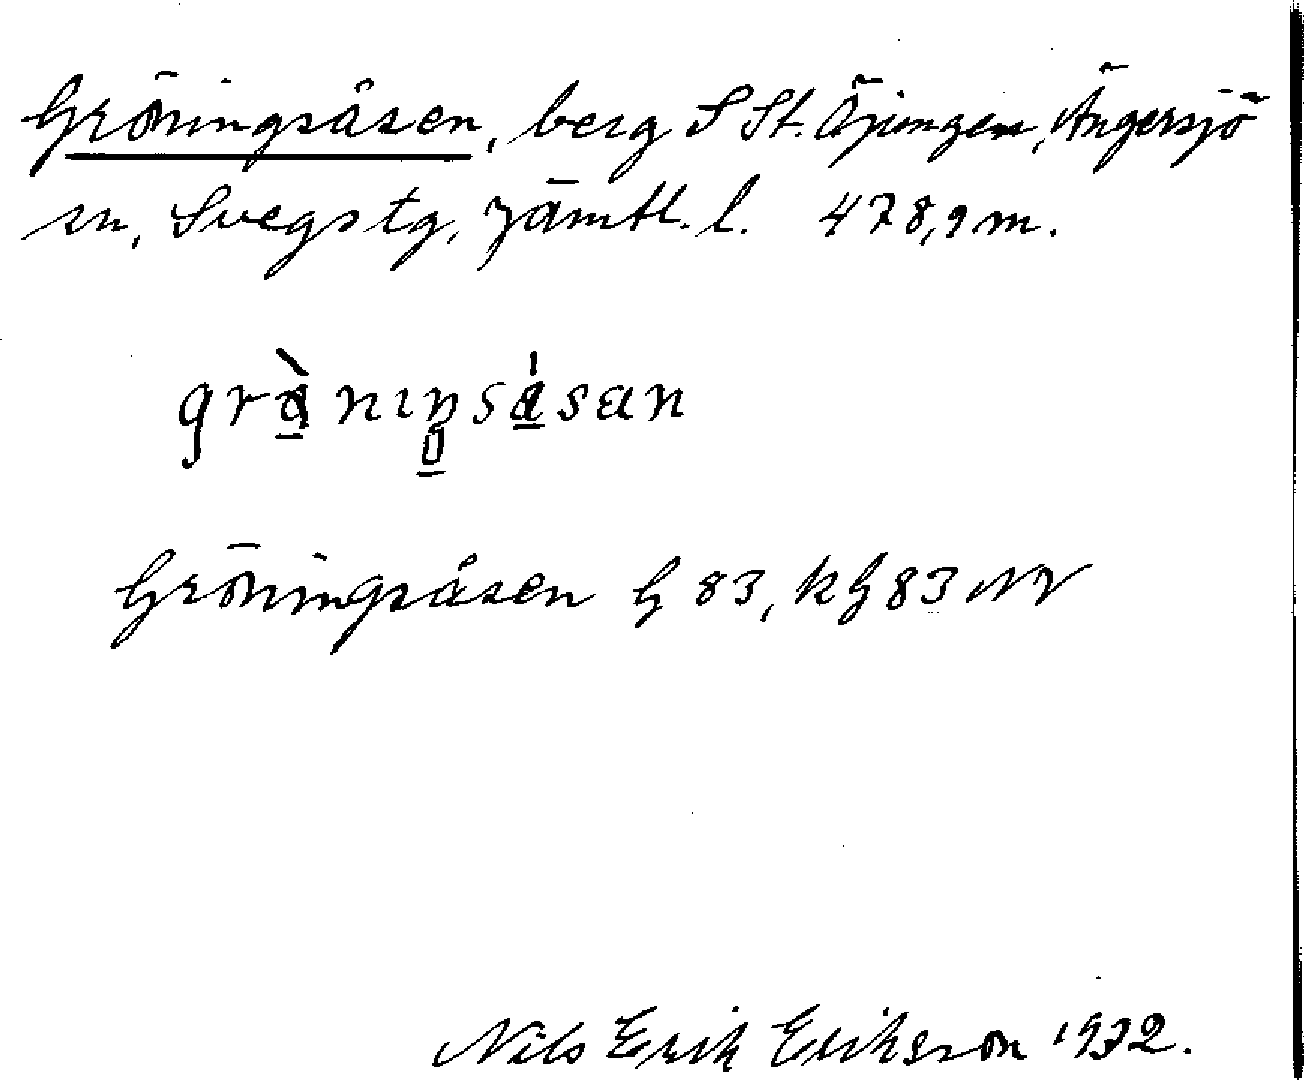 Gröningsåsen, berg S St. Öjungen, Ängersjö
sn, Svegs tg, Jämtl. l. 478,9 m.
Gröningsåsen G 83, k G 83 NV
Nils Erik Eriksson 1932.